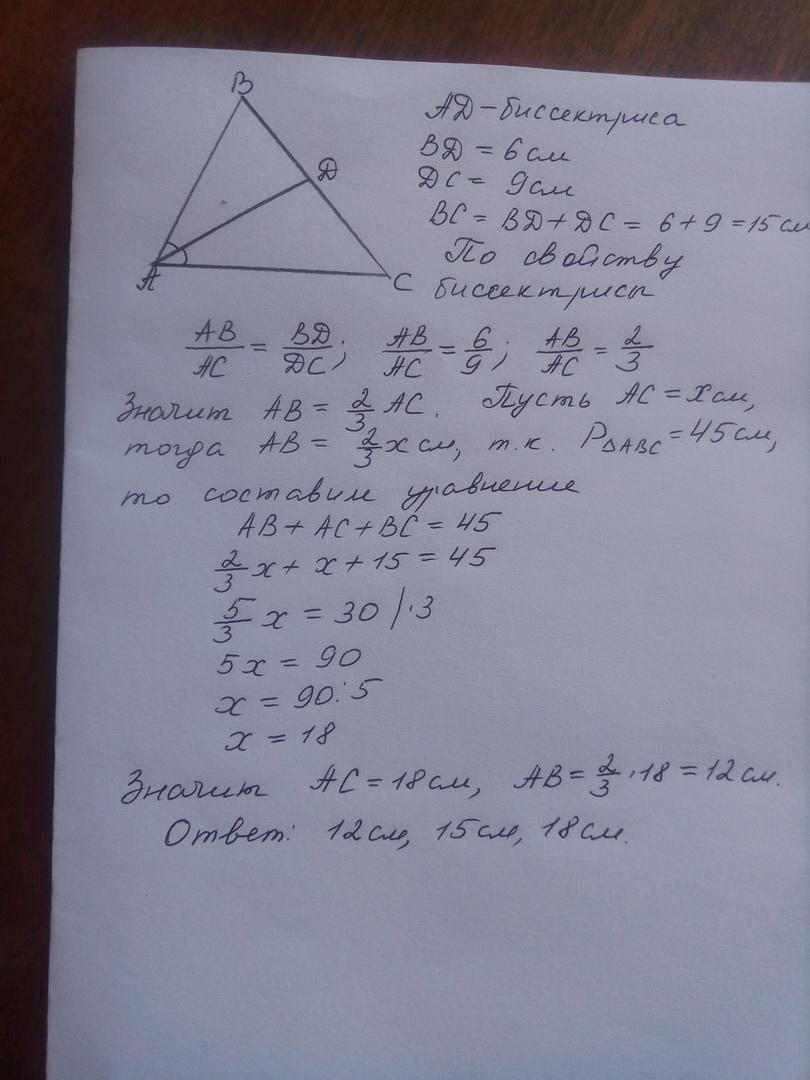 B
AD - биссектриса
BD = 6 см
D
DC = 9 см
BC = BD + DC = 6 + 9 = 15 см
По свойству
A
C
биссектрисы
AB/AC = BD/DC; AB/AC = 6/9; AB/AC = 2/3
Значит AB = 2/3 AC. Пусть AC = x см,
тогда AB = 2/3 x см, т.к. P△ABC = 45 см,
то составим уравнение
AB + AC + BC = 45
2/3 x + x + 15 = 45
5/3 x = 30 | · 3
5x = 90
x = 90 : 5
x = 18
Значит AC = 18 см, AB = 2/3 · 18 = 12 см.
Ответ: 12 см, 15 см, 18 см.